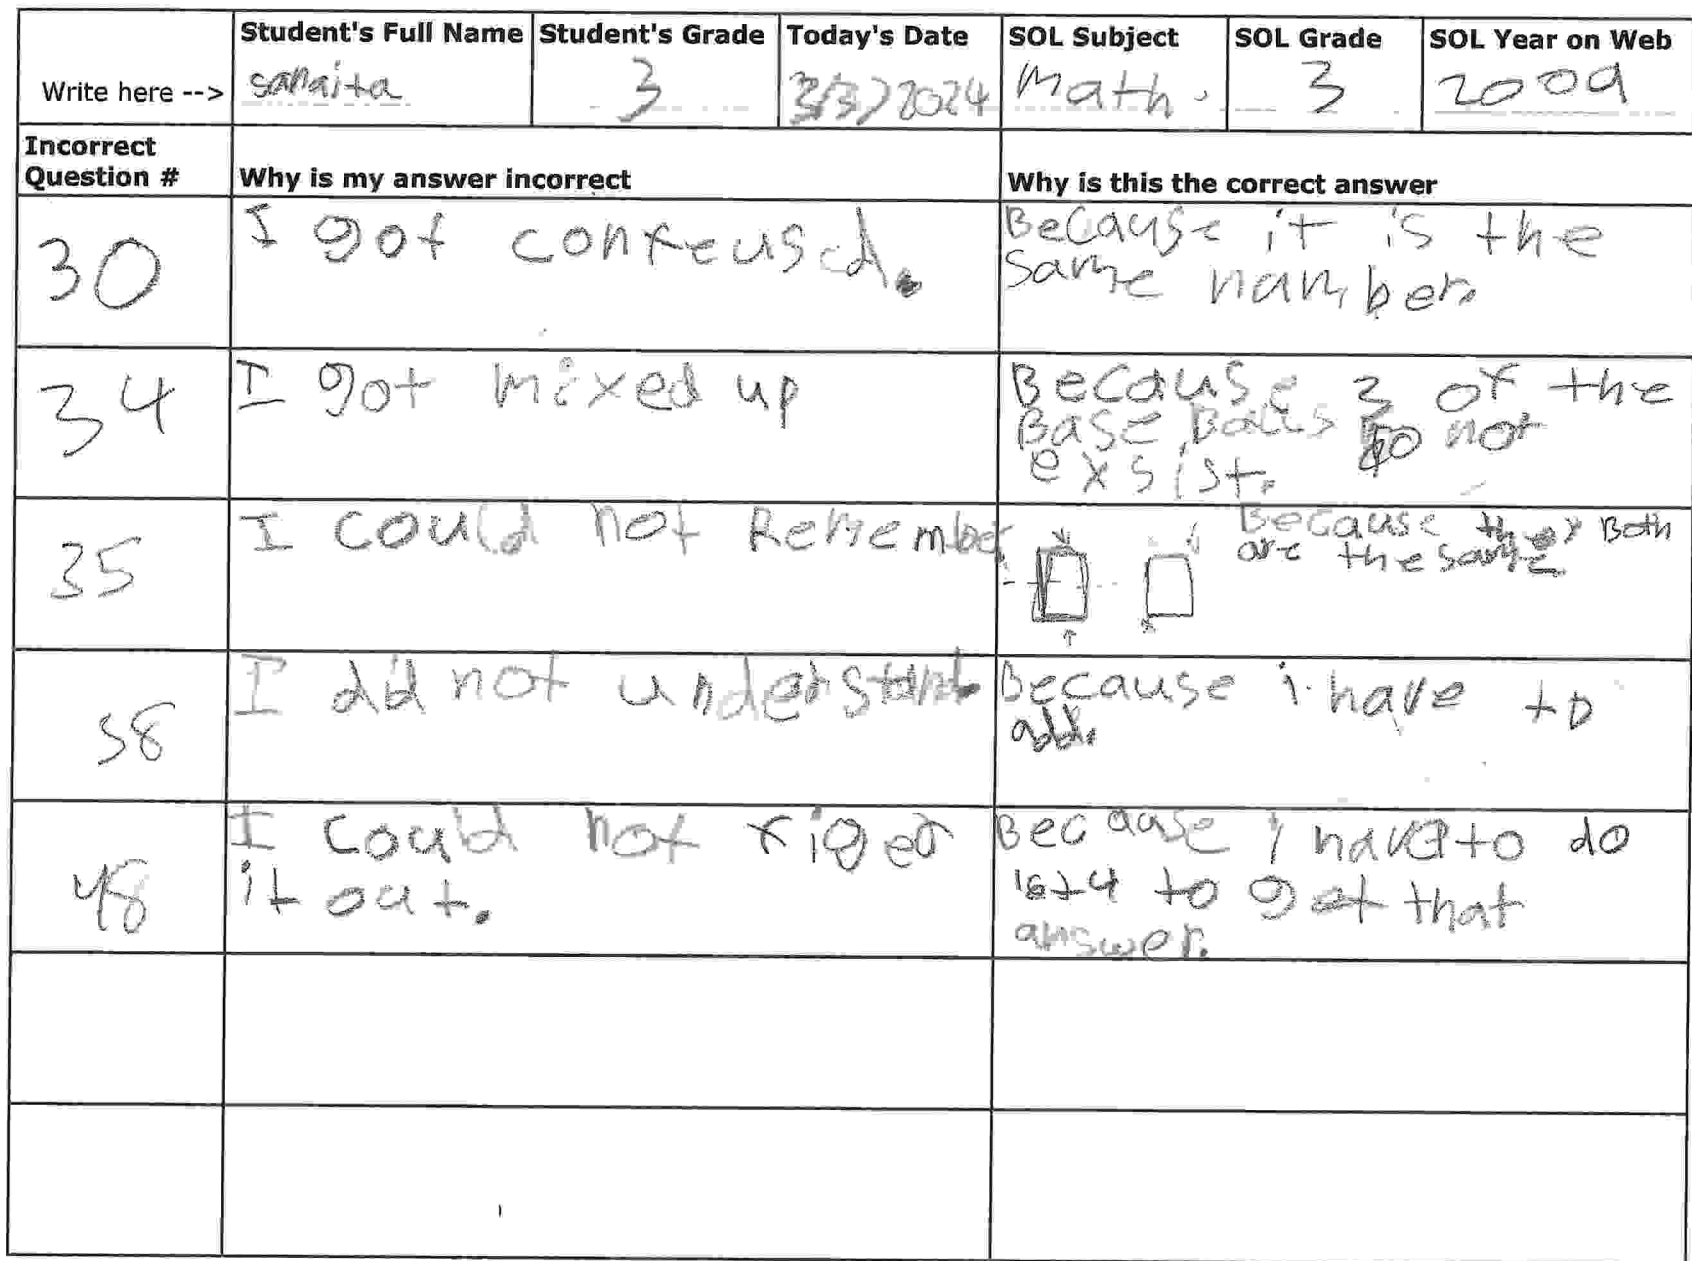 Student's Full Name Student's Grade Today's Date SOL Subject SOL Grade SOL Year on Web
Write here --> sanaita 3 3/3/2024 Math. 3 2009
Incorrect
Question # Why is my answer incorrect Why is this the correct answer
30 I got confeused. Because it is the
same number.
34 I got mixed up Because 3 of the
Base Balls do not
exsist.
35 I could not Remember Because they Both
are the same
38 I did not understand Because i have to
add.
48 I could not figer Because i have to do
it out. 16+4 to get that
answer.